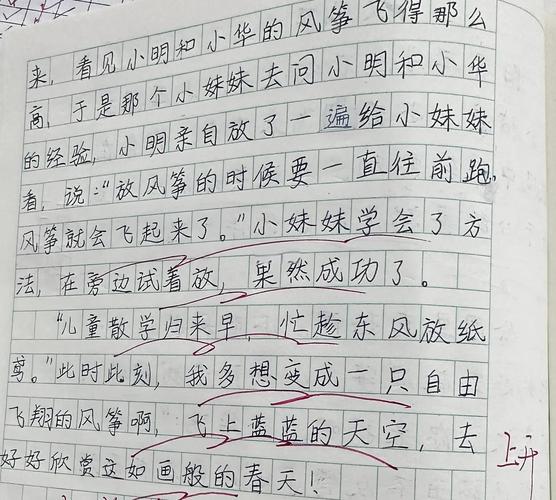 来，看见小明和小华的风筝飞得那么
高，于是那个小妹妹去问小明和小华
的经验，小明亲自放了一遍给小妹妹
看，说：“放风筝的时候要一直往前跑，
风筝就会飞起来了。”小妹妹学会了方
法，在旁边试着放，果然成功了。
“儿童散学归来早，忙趁东风放纸
鸢。”此时此刻，我多想变成一只自由
飞翔的风筝啊，飞上蓝蓝的天空，去
好好欣赏这如画般的春天！